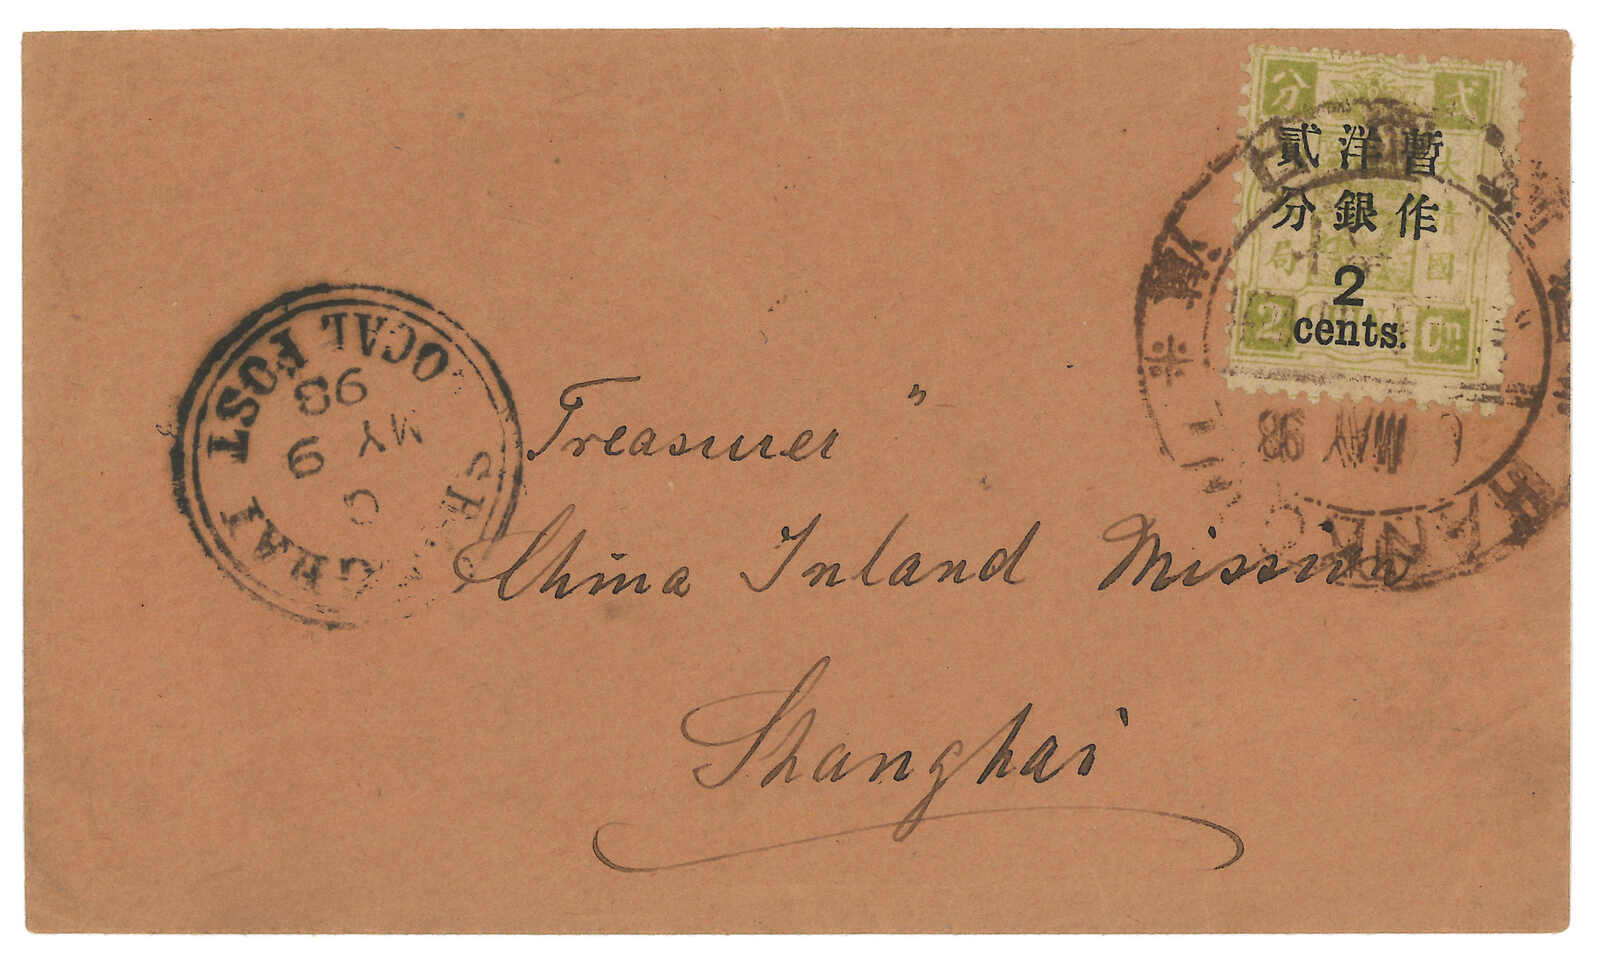 分 貳
大清國
局
暫作
洋銀
貳分
2
cents.
2
SHANGHAI LOCAL POST
MY 9
98
C
MAY 98
Treasurer "
China Inland Mission
Shanghai